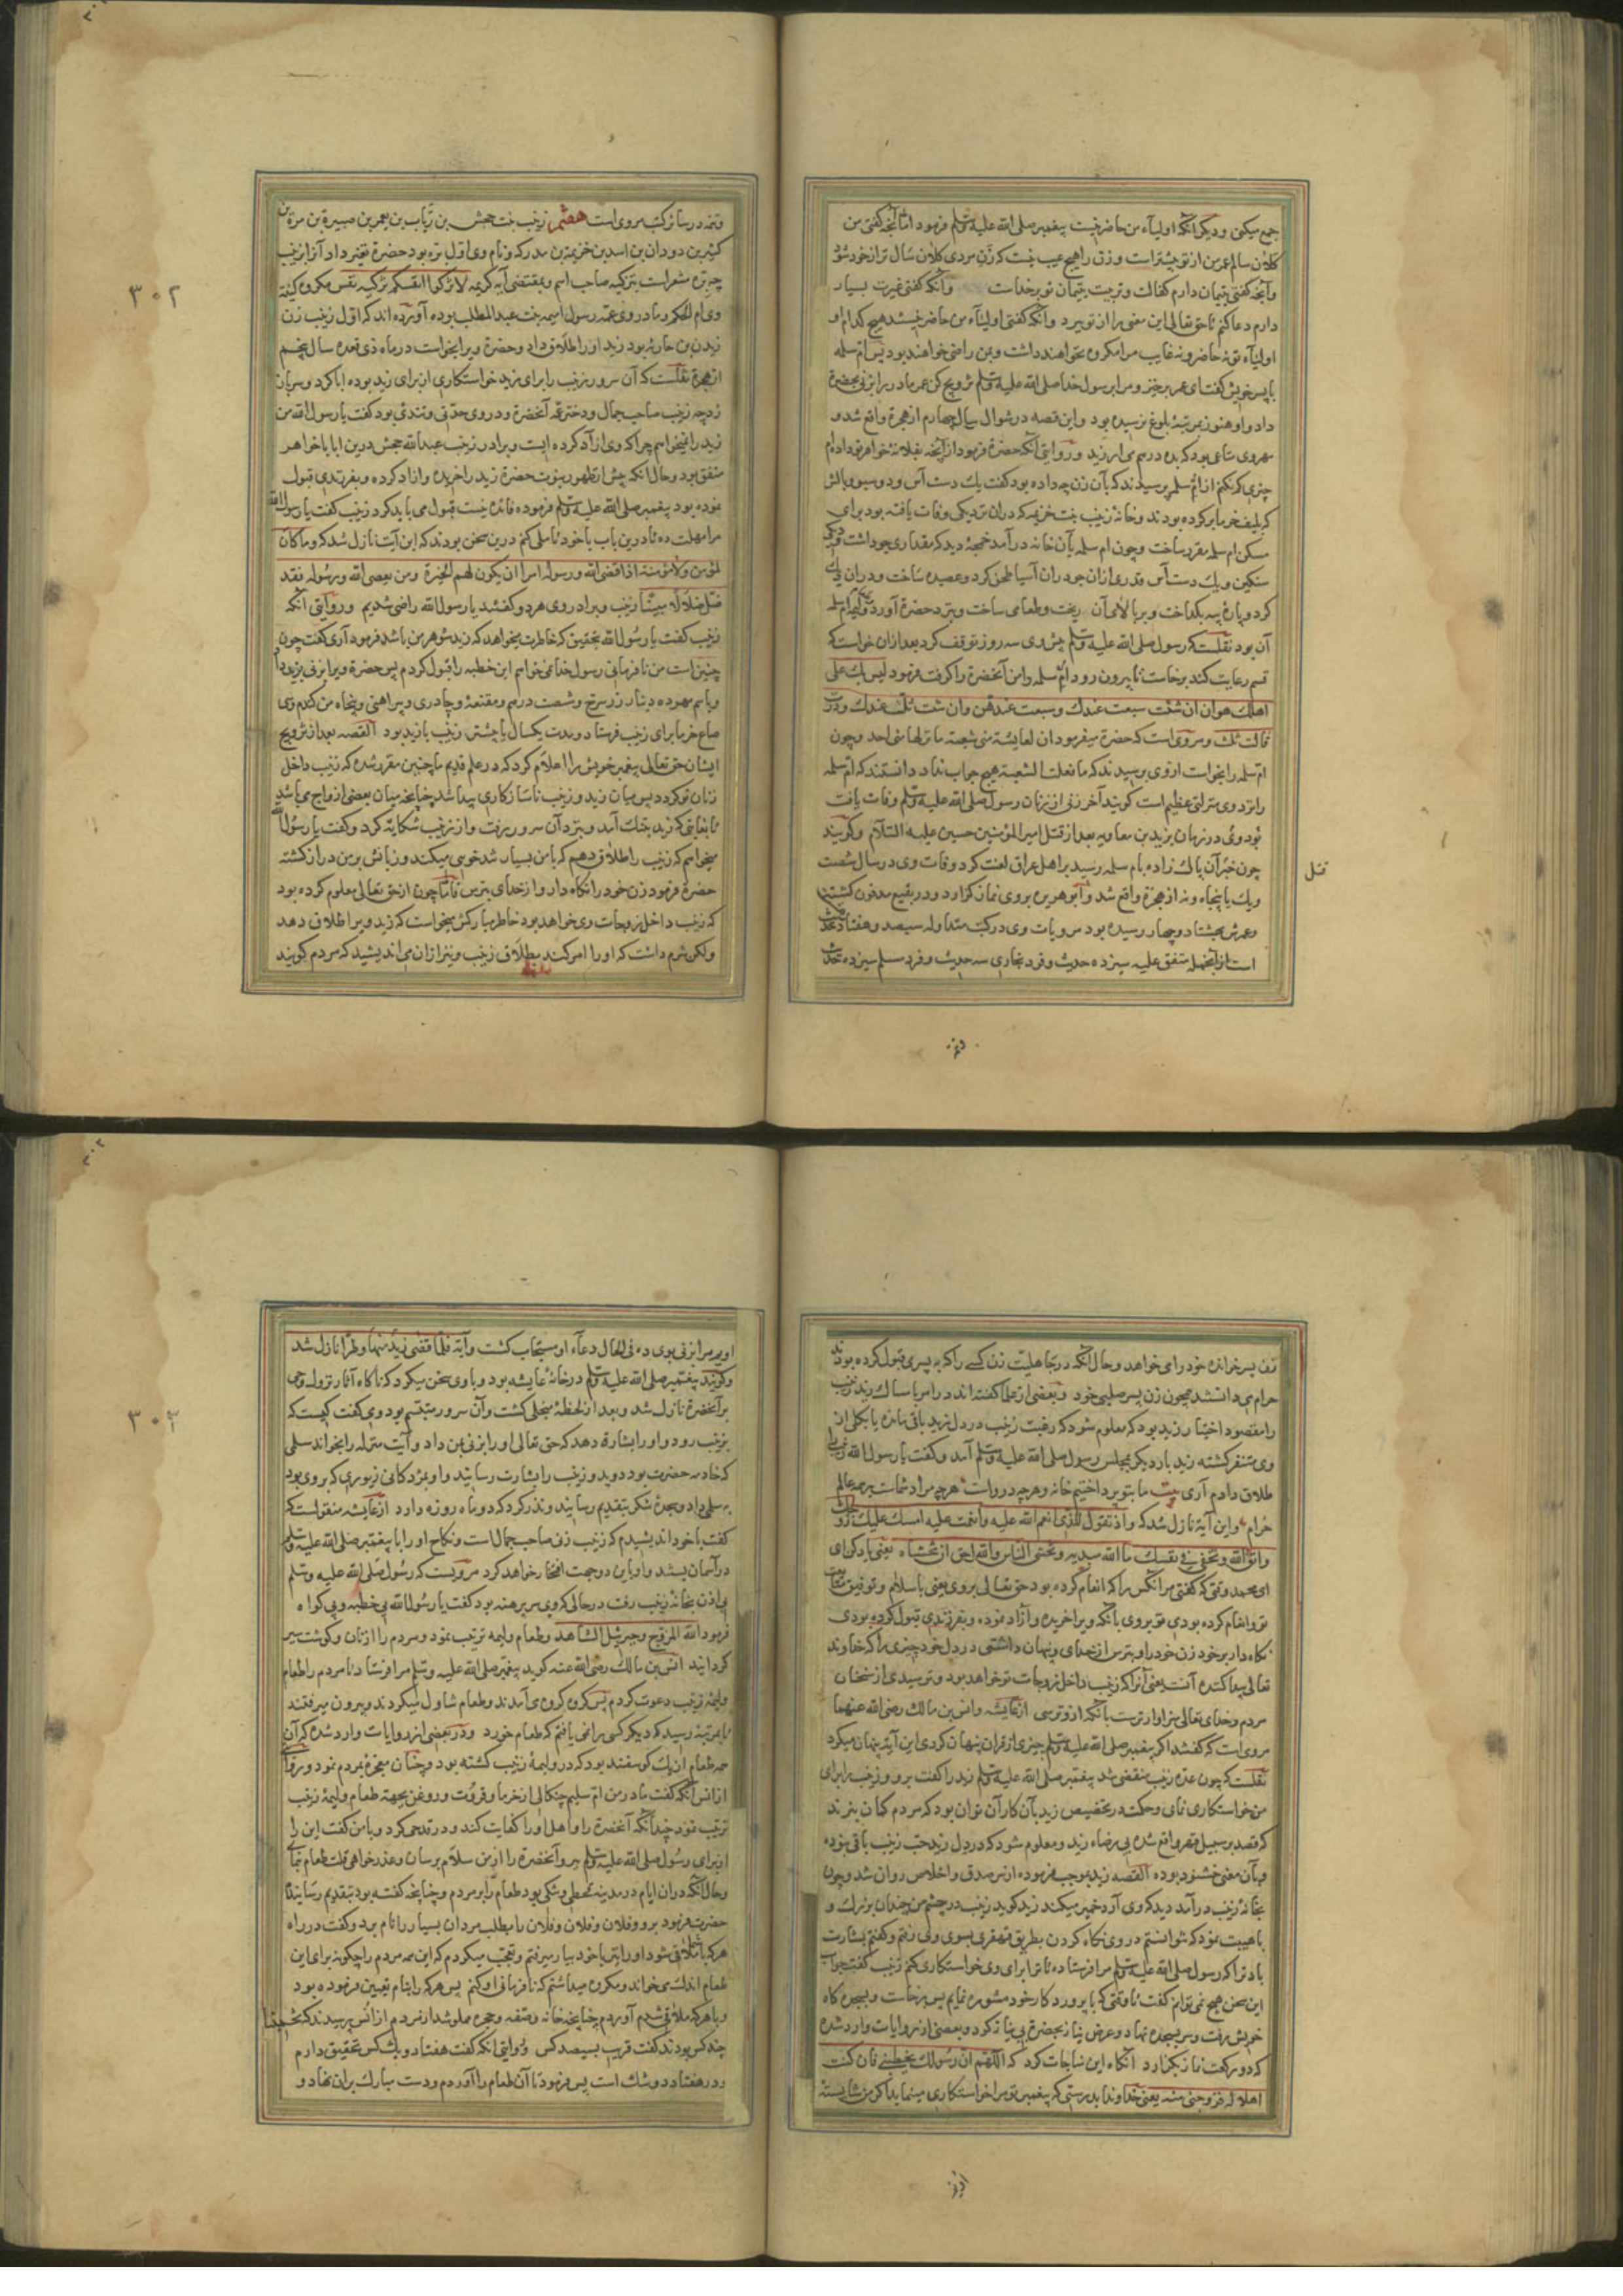 جمع میکنی و دیگر آنکه اولیاء من حاضر نیست پیغمبر صلی الله علیه وسلم فرمود اما آنچه گفتی من
کلان سالم عمر من از تو بیشتر است و زن را هیچ عیب نیست که زن مردی کلان سال تر از خود شود
و آنچه گفتی یتیمان دارم کفالت و تربیت یتیمان تو بر خداست و آنکه گفتی غیرت بسیار
دارم دعا کنم تا حق تعالی این معنی را از تو ببرد و آنکه گفتی اولیاء من حاضر نیستند هیچ کدام از
اولیاء تو نه حاضر و نه غایب مرا مکروه نخواهند داشت و بمن راضی خواهند بود پس ام سلمه
با پسر خویش گفت ای عمر برخیز و مرا برسول خدا صلی الله علیه وسلم تزویج کن عمر مادر را بزنی بحضرة
داد و او هنوز بمرتبهٔ بلوغ نرسیده بود و این قصه در شوال سال چهارم از هجرة واقع شد و
مهر وی متاعی بود که بده درم می ارزید و روایتی آنکه حضرة فرمود از آنچه بفلانه خواهر تو داده ام
چیزی کم نکنم از ام سلمه پرسیدند که بآن زن چه داده بود گفت یک دست آس و دو سبو و بالش
که بلیف خرما پر کرده بودند و خانهٔ زینب بنت خزیمه که دران نزدیکی وفات یافته بود برای
مسکن ام سلمه مقرر ساخت و چون ام سلمه بآن خانه در آمد خمچهٔ دید که مقداری جو داشت و دیگ
سنگین و یک دست آس و قدری ازان جو دران آسیا طحن کرد و عصیده ساخت و دران دیگ
کرد و پارهٔ پیه بگداخت و بر بالای آن ریخت و طعامی ساخت و بنزد حضرة آورد ولیمهٔ ام سلمه
آن بود نقلست که رسول صلی الله علیه وسلم پیش وی سه روز توقف کرد بعد ازان خواست که
قسم رعایت کند برخاست تا بیرون رود ام سلمه دامن آنحضرة را گرفت فرمود لیس بک علی
اهلک هوان ان شئت سبعت عندک و سبعت عندهن وان شئت ثلثت عندک ودرت
قالت ثلث و مروی است که حضرة میفرمود ان لعایشة منی شعبة ما نزلها منی احد و چون
ام سلمه را بخواست از وی پرسیدند که ما فعلت الشعبة هیچ جواب نداد دانستند که ام سلمه
را نزد وی منزلتی عظیم است گویند آخر زنی از زنان رسول صلی الله علیه وسلم وفات یافت
بود وی در زمان یزید بن معاویه بعد از قتل امیر المؤمنین حسین علیه السلام و گویند
چون خبر آن پاک زاده بام سلمه رسید بر اهل عراق لعنت کرد و وفات وی در سال شصت
قتل
ویک یا پنجاه و نه از هجرة واقع شد و ابو هریره بر وی نماز گزارد و در بقیع مدفون گشت
و عمرش بهشتاد و چهار رسیده بود مرویات وی در کتب متداوله سیصد و هفتاد و هشت حدیث
است از آنجمله متفق علیه سیزده حدیث و فرد بخاری سه حدیث و فرد مسلم سیزده حدیث
وتمه
وتمه در سائر کتب مروی است هشتم زینب بنت جحش بن ریاب بن یعمر بن صبیرة بن مرة بن
کثیر بن دودان بن اسد بن خزیمة بن مدرکه و نام وی اول بره بود حضرة تغییر داد آنرا بزینب
چه بره مشعر است بتزکیه صاحب اسم و بمقتضی آیه کریمه لا تزکوا انفسکم تزکیه نفس مکروه کنیة
وی ام الحکم و مادر وی عمهٔ رسول امیمه بنت عبد المطلب بوده آورده اند که اول زینب زن
زید بن حارثه بود زید او را طلاق داد و حضرة ویرا بخواست در ماه ذی قعده سال پنجم
از هجرة نقلست که آن سرور زینب را برای زید خواستکاری از برای زید بوده ابا کرد و سر باز
زد چه زینب صاحب جمال و دختر عمهٔ آنحضرة و در وی حدتی و تندی بود گفت یا رسول الله من
زید را نمیخواهم چرا که وی از آد کرده است و برادر زینب عبد الله جحش درین ابا با خواهر
متفق بود و حال آنکه پیش از ظهور نبوت حضرة زید را خریده و ازاد کرده و بفرزندی قبول
نموده بود پیغمبر صلی الله علیه وسلم فرموده فائده نیست قبول می باید کرد زینب گفت یا رسول الله
مرا مهلت ده تا درین باب با خود تاملی کنم درین سخن بودند که این آیت نازل شد که و ما کان
لمؤمن ولا مؤمنة اذا قضی الله ورسوله امرا ان یکون لهم الخیرة ومن یعصی الله ورسوله فقد
ضل ضلالا مبینا زینب و برادر وی هر دو گفتند یا رسول الله راضی شدیم و روایتی آنکه
زینب گفت یا رسول الله بتحقیق که خاطرت میخواهد که زید شوهر من باشد فرمود آری گفت چون
چنین است من نا فرمانی رسول خدا نمی خواهم این خطبه را قبول کردم پس حضرة ویرا بزنی بزید داد
و باسم مهر ده دینار زر سرخ و شصت درهم و مقنعهٔ و چادری و پیراهنی و پنجاه من گندم و سی
صاع خرما برای زینب فرستاد و مدت یکسال یا بیشتر زینب با زید بود القصه بعد از تزویج
ایشان حق تعالی پیغمبر خویش را اعلام کرد که در علم قدیم ما چنین مقرر شده که زینب داخل
زنان تو گردد پس میان زید و زینب ناسازکاری پیدا شد چنانچه میان بعضی ازواج می باشد
تا بغایتی که زید بتنگ آمد و بنزد آن سرور رفت و از زینب شکایة کرد و گفت یا رسول الله
میخواهم که زینب را طلاق دهم که با من بسیار تند خویی میکند و زبانش بر من دراز گشته
حضرة فرمود زن خود را نگاه دار و از خدای بترس فاما چون از حق تعالی معلوم کرده بود
که زینب داخل زوجات وی خواهد بود خاطر مبارکش میخواست که زید ویرا طلاق دهد
ولکن شرم داشت که او را امر کند بطلاق زینب و نیز ازان می اندیشید که مردم گویند
۳۰۲
زن پسر خوانده خود را می خواهد و حال آنکه در جاهلیت زن کسے را که به پسری قبول کرده بودند
حرام می دانستند همچون زن پسر صلبی خود و بعضی از علما گفته اند در امر بامساک زید زینب
را مقصود اختبار زید بود که معلوم شود که رغبت زینب در دل زید باقی مانده یا بکلی از
وی متنفر گشته زید بار دیگر بمجلس رسول صلی الله علیه وسلم آمد و گفت یا رسول الله زینب را
طلاق دادم آری بیت ما بتو پرداختیم خانه و هرچه دروست هرچه مراد شماست بر همه عالم
حرام و این آیة نازل شد که و اذ تقول للذی انعم الله علیه وانعمت علیه امسک علیک زوجک
واتق الله وتخفی فی نفسک ما الله مبدیه وتخشی الناس والله احق ان تخشاه یعنی یاد کن ای
ای محمد وقتی که گفتی مر انکس را که انعام کرده بود حق تعالی بروی یعنی باسلام و توفیق متابعت
تو و انعام کرده بودی تو بروی بآنکه ویرا خریده و آزاد نموده و بفرزندی قبول کرده بودی
نکاه دار بر خود زن خود را و بترس از خدای و پنهان داشتی در دل خود چیزی را که خداوند
تعالی پیدا کننده آنست یعنی آنرا که زینب داخل زوجات تو خواهد بود و ترسیدی از سخنان
مردم و خدای تعالی سزاوارترست بآنکه ازو ترسی از عایشه و انس بن مالک رضی الله عنهما
مروی است که گفتند اکر پیغمبر صلی الله علیه وسلم چیزی از قران پنهان کردی این آیة پنهان میکرد
نقلست که چون عدهٔ زینب منقضی شد پیغمبر صلی الله علیه وسلم زید را گفت برو و زینب را برای
من خواستکاری نمای و حکمت در تخصیص زید بآن کار آن توان بود که مردم گمان نبرند
که قصد بر سبیل قهر واقع شده بی رضاء زید و معلوم شود که در دل زید حب زینب باقی نبوده
و بآن معنی خشنود بوده القصه زید بموجب فرموده از سر صدق و اخلاص روان شد و چون
بخانهٔ زینب در آمد دید که وی آرد خمیر میکند زید گوید زینب در چشم من چندان بزرک و
با هیبت نمود که نتوانستم در وی نگاه کردن بطریق قهقری بسوی وی رفتم و گفتم بشارت
باد ترا که رسول صلی الله علیه وسلم مرا فرستاده تا ترا برای وی خواستکاری کنم زینب گفت جواب
این سخن هیچ نمی توانم گفت تا وقتی که با پروردکار خود مشوره نمایم پس برخاست و بسجده کاه
خویش رفت و سر بسجده نهاد و عرض نیاز بحضرة بی نیاز کرد و بعضی از روایات وارد شده
که دو رکعت نماز بگزارد آنکاه این مناجات کرد که اللهم ان رسولک یخطبنی فان کنت
اهلا له فزوجنی منه یعنی خداوندا بدرستی که پیغمبر تو مرا خواستکاری مینماید اگر من شایستهٔ
اویم
اویم مرا بزنی بوی ده فی الحال دعاء او مستجاب گشت و آیة فلما قضی زید منها وطرا نازل شد
و گویند پیغمبر صلی الله علیه وسلم در خانهٔ عایشه بود و با وی سخن میکرد که ناکاه آثار نزول وحی
بر آنحضرة نازل شد و بعد از لحظهٔ منجلی گشت و آن سرور متبسم بود و می گفت کیست که
بزینب رود و او را بشارة دهد که حق تعالی او را بزنی بمن داد و آیت منزله را بخواند سلمی
که خادمه حضرت بود دوید و زینب را بشارت رسانید و او بمژدکانی زیوری که بر وی بود
به سلمی داد و سجدهٔ شکر بتقدیم رسانید و نذر کرد که دو ماه روزه دارد از عایشه منقولست که
گفت با خود اندیشیدم که زینب زنی صاحب جمال است و نکاح او را با پیغمبر صلی الله علیه وسلم
در آسمان بستند و او باین دو جهت افتخار خواهد کرد مرویست که رسول صلی الله علیه وسلم
بی اذن بخانهٔ زینب رفت در حالی که وی سر برهنه بود گفت یا رسول الله بی خطبه و بی کواه
فرمود الله المزوج وجبرئیل الشاهد و طعام ولیمه ترتیب نمود و مردم را از نان و کوشت سیر
کردانید انس بن مالک رضی الله عنه گوید پیغمبر صلی الله علیه وسلم مرا فرستاد تا مردم را طعام
ولیمهٔ زینب دعوت کردم پس کروه کروه می آمدند و طعام تناول میکردند و بیرون میرفتند
تا بمرتبهٔ رسید که دیگر کسی را نمی یافتم که طعام خورد و در بعضی از روایات وارد شده که آن
همه طعام از یک کوسفند بود که در ولیمهٔ زینب کشته بود و چنان معجزه بمردم نمود و روایتی
از انس آنکه گفت مادر من ام سلیم چنکالی از خرما و قروت و روغن بجهة طعام ولیمهٔ زینب
ترتیب نمود چندانکه آنحضرة را و اهل او را کفایت کند و در قدحی کرد و با من گفت این را
از برای رسول صلی الله علیه وسلم ببر و آنحضرة را از من سلام برسان و عذر خواهی قلت طعام نمای
و حال آنکه دران ایام در مدینه قحطی و تنکی بود طعام را بردم و چنانچه گفته بود بتقدیم رسانیدم
حضرت فرمود برو و فلان و فلان و فلان را بطلب مردان بسیار را نام برد و گفت در راه
هر که با تو ملاقی شود او را نیز با خود بیار میرفتم و تعجب میکردم که این همه مردم را چکونه برای این
طعام اندک می خواند و مکروه میداشتم که نافرمانی او کنم پس هر که را بنام تعیین فرموده بود
و با هر که ملاقی شدم آوردم چنانچه خانه و صفه و حجره مملو شد از مردم از انس پرسیدند که تخمینا
چند کس بودند گفت قریب بسیصد کس و روایتی آنکه گفت هفتاد و یک کس تحقیق دارم
و در هفتاد و دو شک است پس فرمود تا آن طعام را آوردم و دست مبارک بران نهاد و
۳۰۳